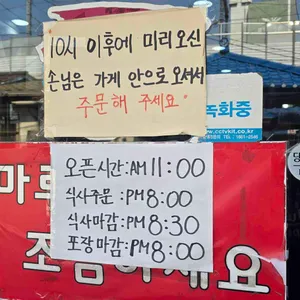 10시 이후에 미리오신
손님은 가게 안으로 오셔서
주문해 주세요
녹화중
www.cctvkit.co.kr
오픈시간:AM 11:00
식사주문:PM 8:00
식사마감:PM 8:30
포장마감:PM 8:00